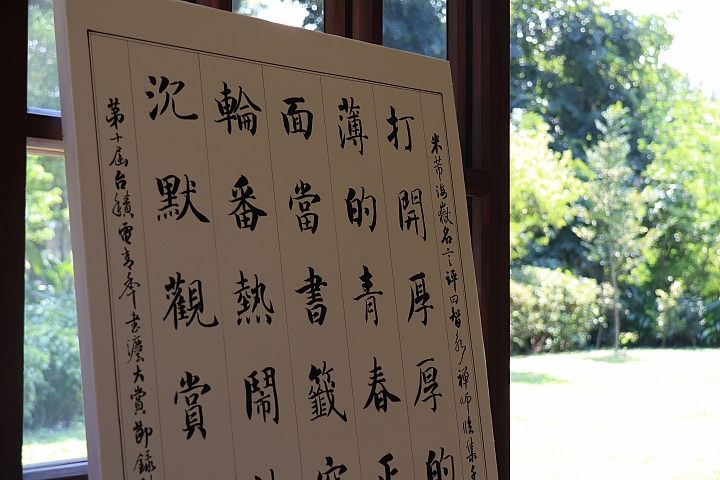 米芾海嶽名言評曰智永禪師臨集千
打開厚厚的
薄的青春正
面當書籤
輪番熱鬧
沉默觀賞
第十屆台積電青年書法大賞節錄